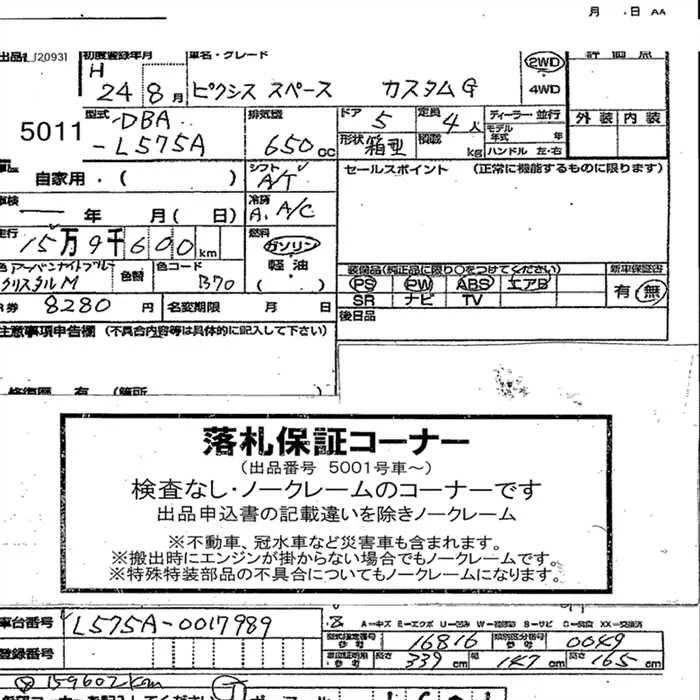 月 日 AA
出品 [2093]
初度登録年月
車名・グレード
2WD
評価点
H 24 8月
ピクシス スペース カスタム G
4WD
5011
型式 DBA
-L575A
排気量
650 cc
ドア 5
定員 4人
ディーラー 並行
外装 内装
形状 箱型
積載 kg
モデル年式 年
ハンドル 左・右
自家用・( )
シフト
A/T
セールスポイント (正常に機能するものに限ります)
車検 ー 年 月( 日)
冷房
A. A/C
走行 15万9千600km
燃料
ガソリン
軽油
( )
色 アーバンナイトブルークリスタルM
色替
色コード
B70
装備品(純正品に限り○をつけてください)
新車保証書
PS PW ABS エアB
有 無
SR ナビ TV
後日品
R券 8280 円
名変期限 月 日
注意事項申告欄 (不具合内容等は具体的に記入して下さい)
修復歴 有 (箇所 )
落札保証コーナー
(出品番号 5001号車~)
検査なし・ノークレームのコーナーです
出品申込書の記載違いを除きノークレーム
※不動車、冠水車など災害車も含まれます。
※搬出時にエンジンが掛からない場合でもノークレームです。
※特殊特装部品の不具合についてもノークレームになります。
車台番号 L575A-0017989
A-キズ E-エクボ U-凹み W-補修跡 S-サビ C-腐食 XX-交換済
型式指定番号 参考 16816
類別区分番号 参考 0049
登録番号
参考 長さ 339 cm 幅 147 cm 高さ 165 cm
159607km